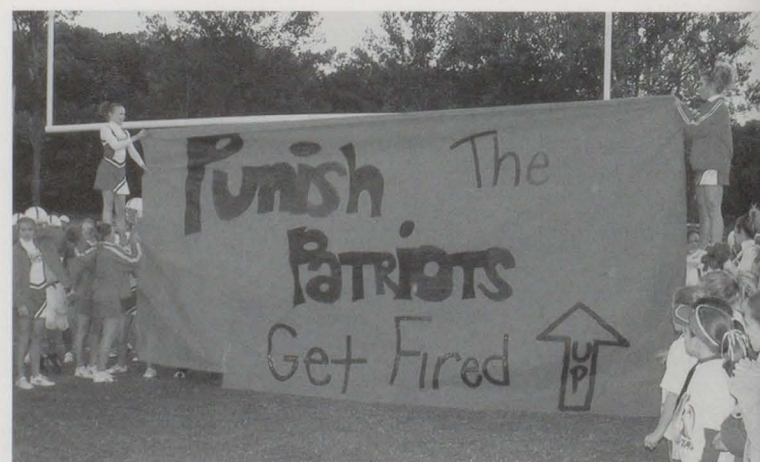 Punish The
Patriots
Get Fired UP